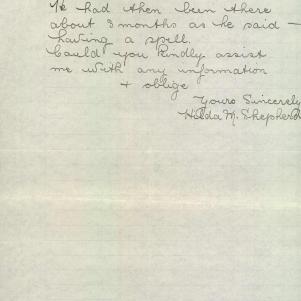 He had then been there
about 3 months as he said —
having a spell.
Could you kindly assist
me with any information
+ oblige
Yours Sincerely
Hilda M. Shepherd